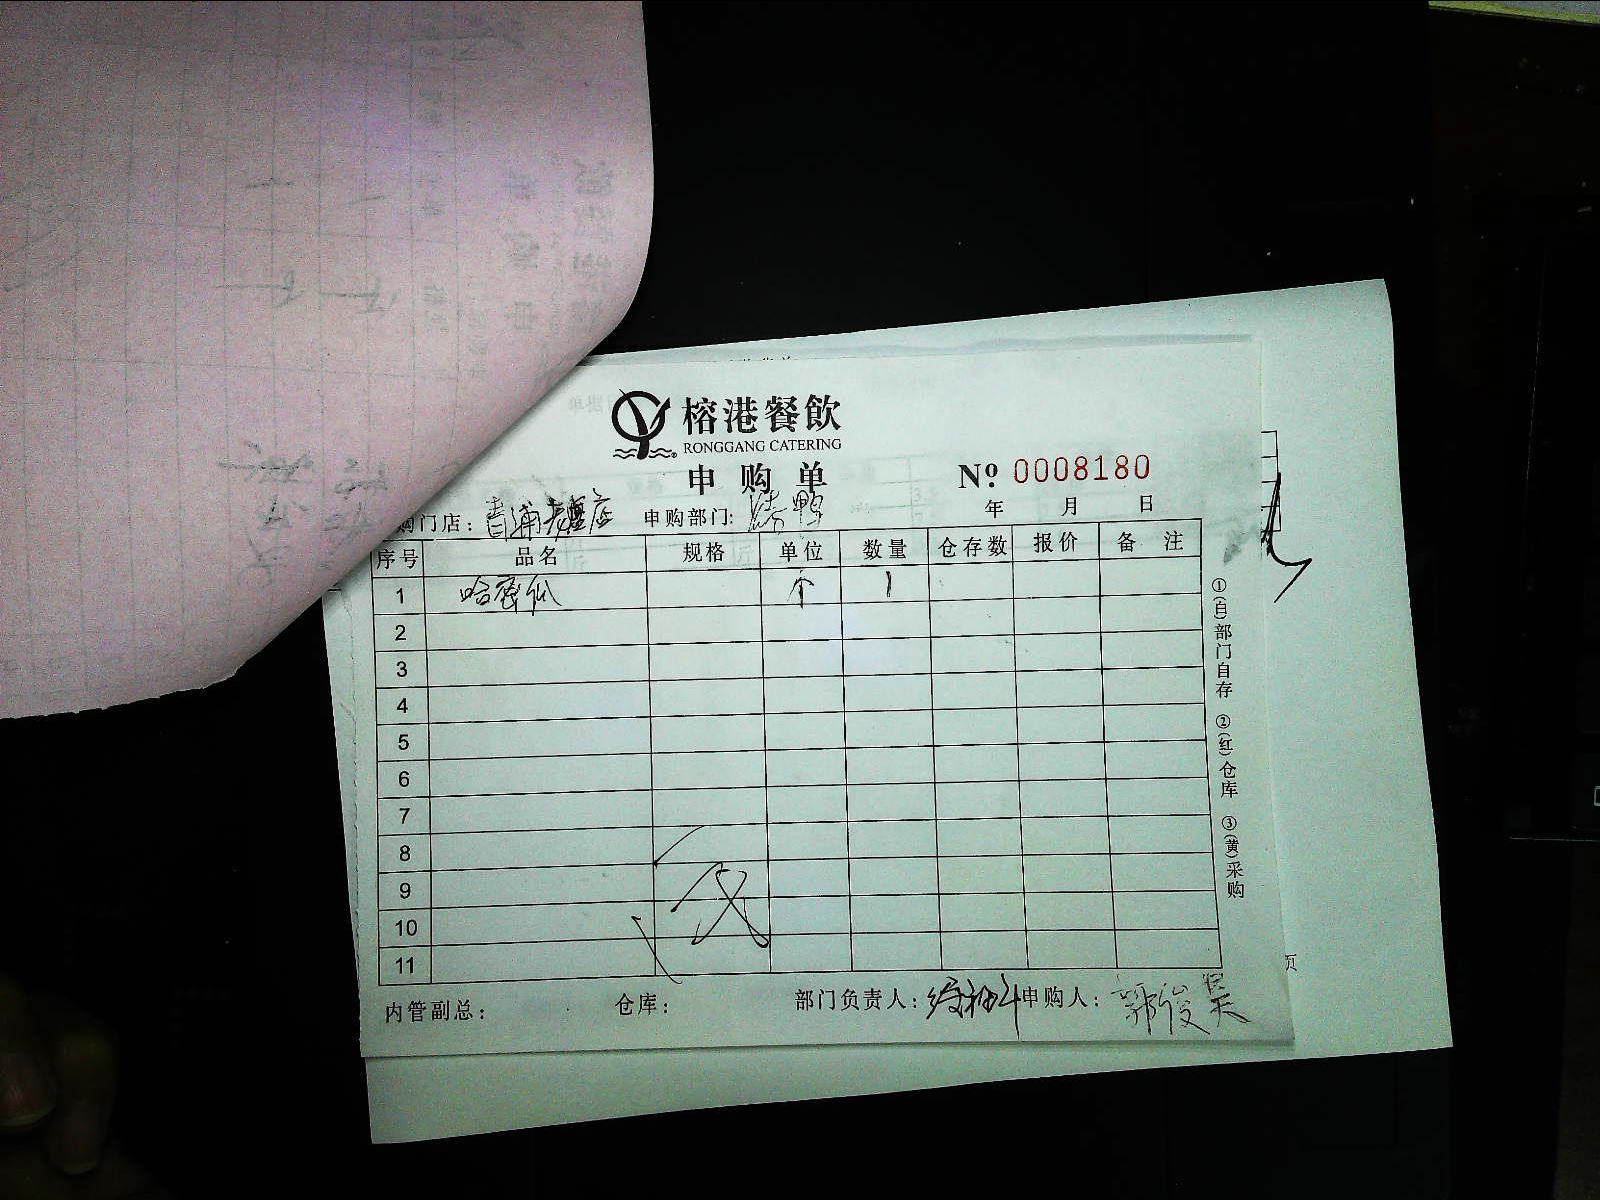 榕港餐飲
RONGGANG CATERING
申购单
Nº 0008180
年 月 日
购门店：青浦 店 申购部门：烤鸭
序号 品名 规格 单位 数量 仓存数 报价 备注
1 哈密瓜 个 1
2
3
4
5
6
7
8
9
10
11
内管副总： 仓库： 部门负责人： 申购人：郭俊昊
①(白)部门自存 ②(红)仓库 ③(黄)采购
页